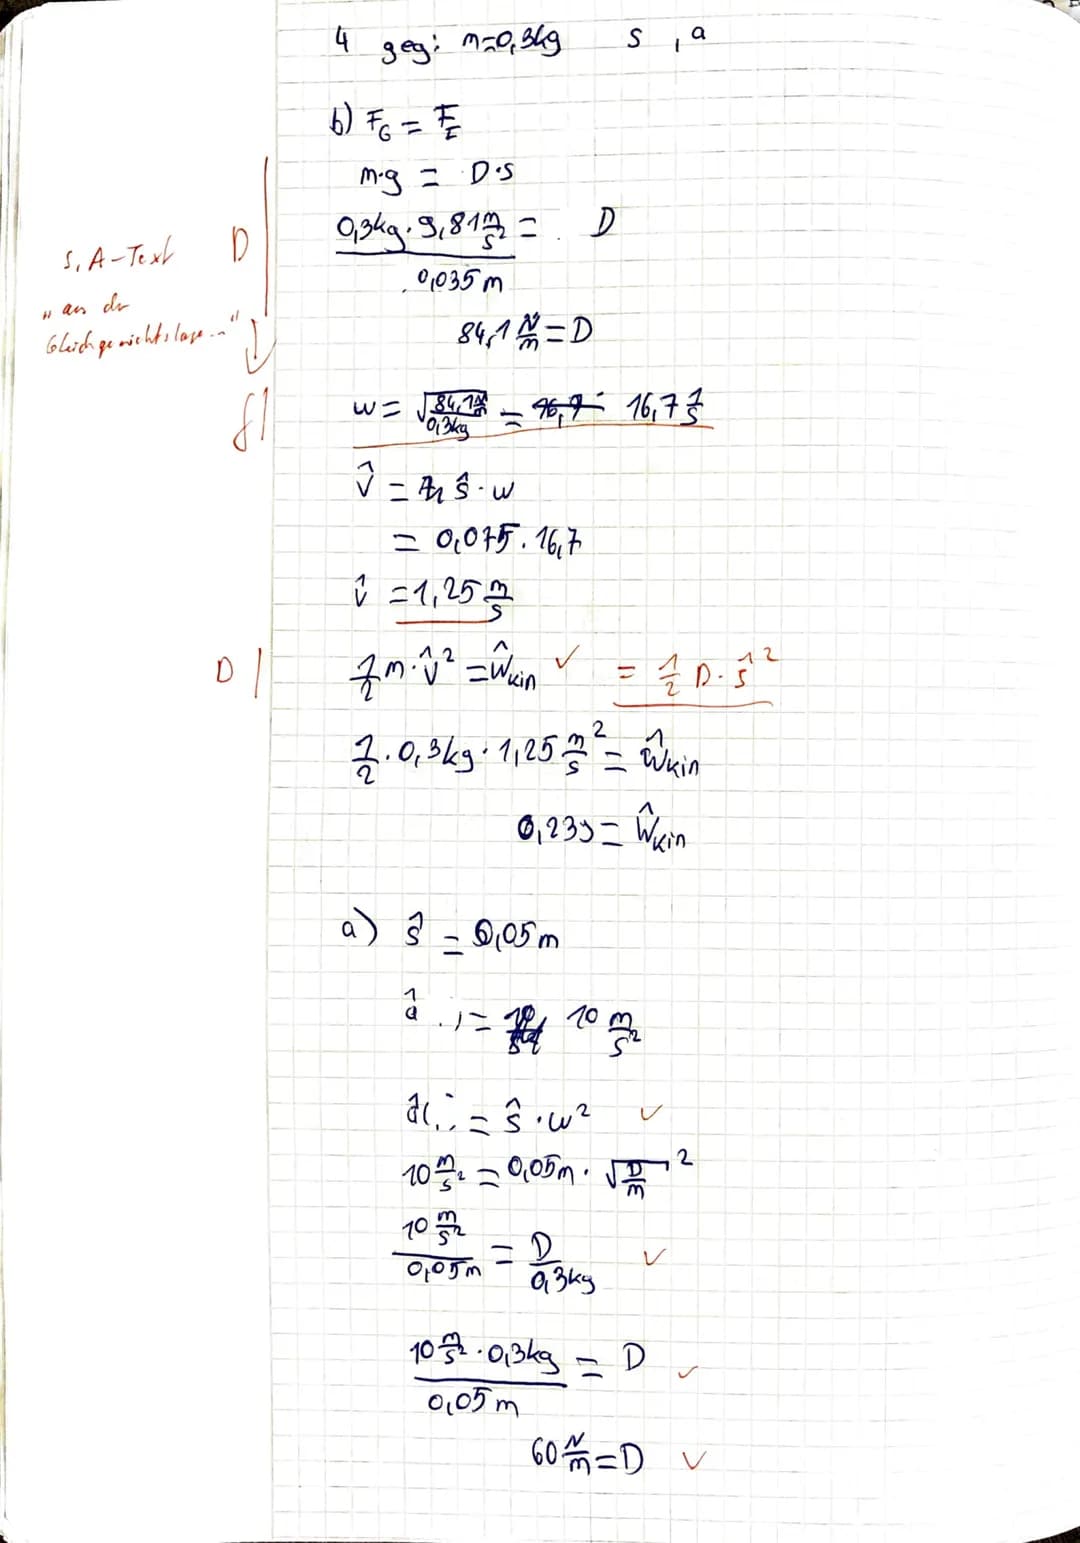 4 geg: m=0,3kg s , a
b) F_G = F_E
m·g = D·s
0,3kg · 9,81 m/s² / 0,035 m = D
s, A-Text D
"an der
Gleichgewichtslage..."
84,1 N/m = D
f| w = √(84,1 N/m / 0,3kg) = 16,7 16,7 1/s
v̂ = ŝ · w
= 0,075 · 16,7
v̂ = 1,25 m/s
D | 1/2 m · v̂² = Ŵkin ✓ = 1/2 D · ŝ²
1/2 · 0,3kg · 1,25 m/s ² = Ŵkin
0,23J = Ŵkin
a) ŝ = 0,05 m
â = 10 m/s²
â = ŝ · w² ✓
10 m/s² = 0,05m · √(D/m) ²
10 m/s² / 0,05m = D / 0,3kg ✓
10 m/s² · 0,3kg / 0,05 m = D ✓
60 N/m = D ✓